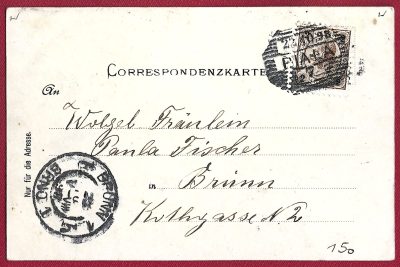 CORRESPONDENZKARTE
An
Wolgeb. Fräulein
Paula Fischer
in Brünn
Kothgasse N 2
Nur für die Adresse.
BIALA
BRÜNN
150